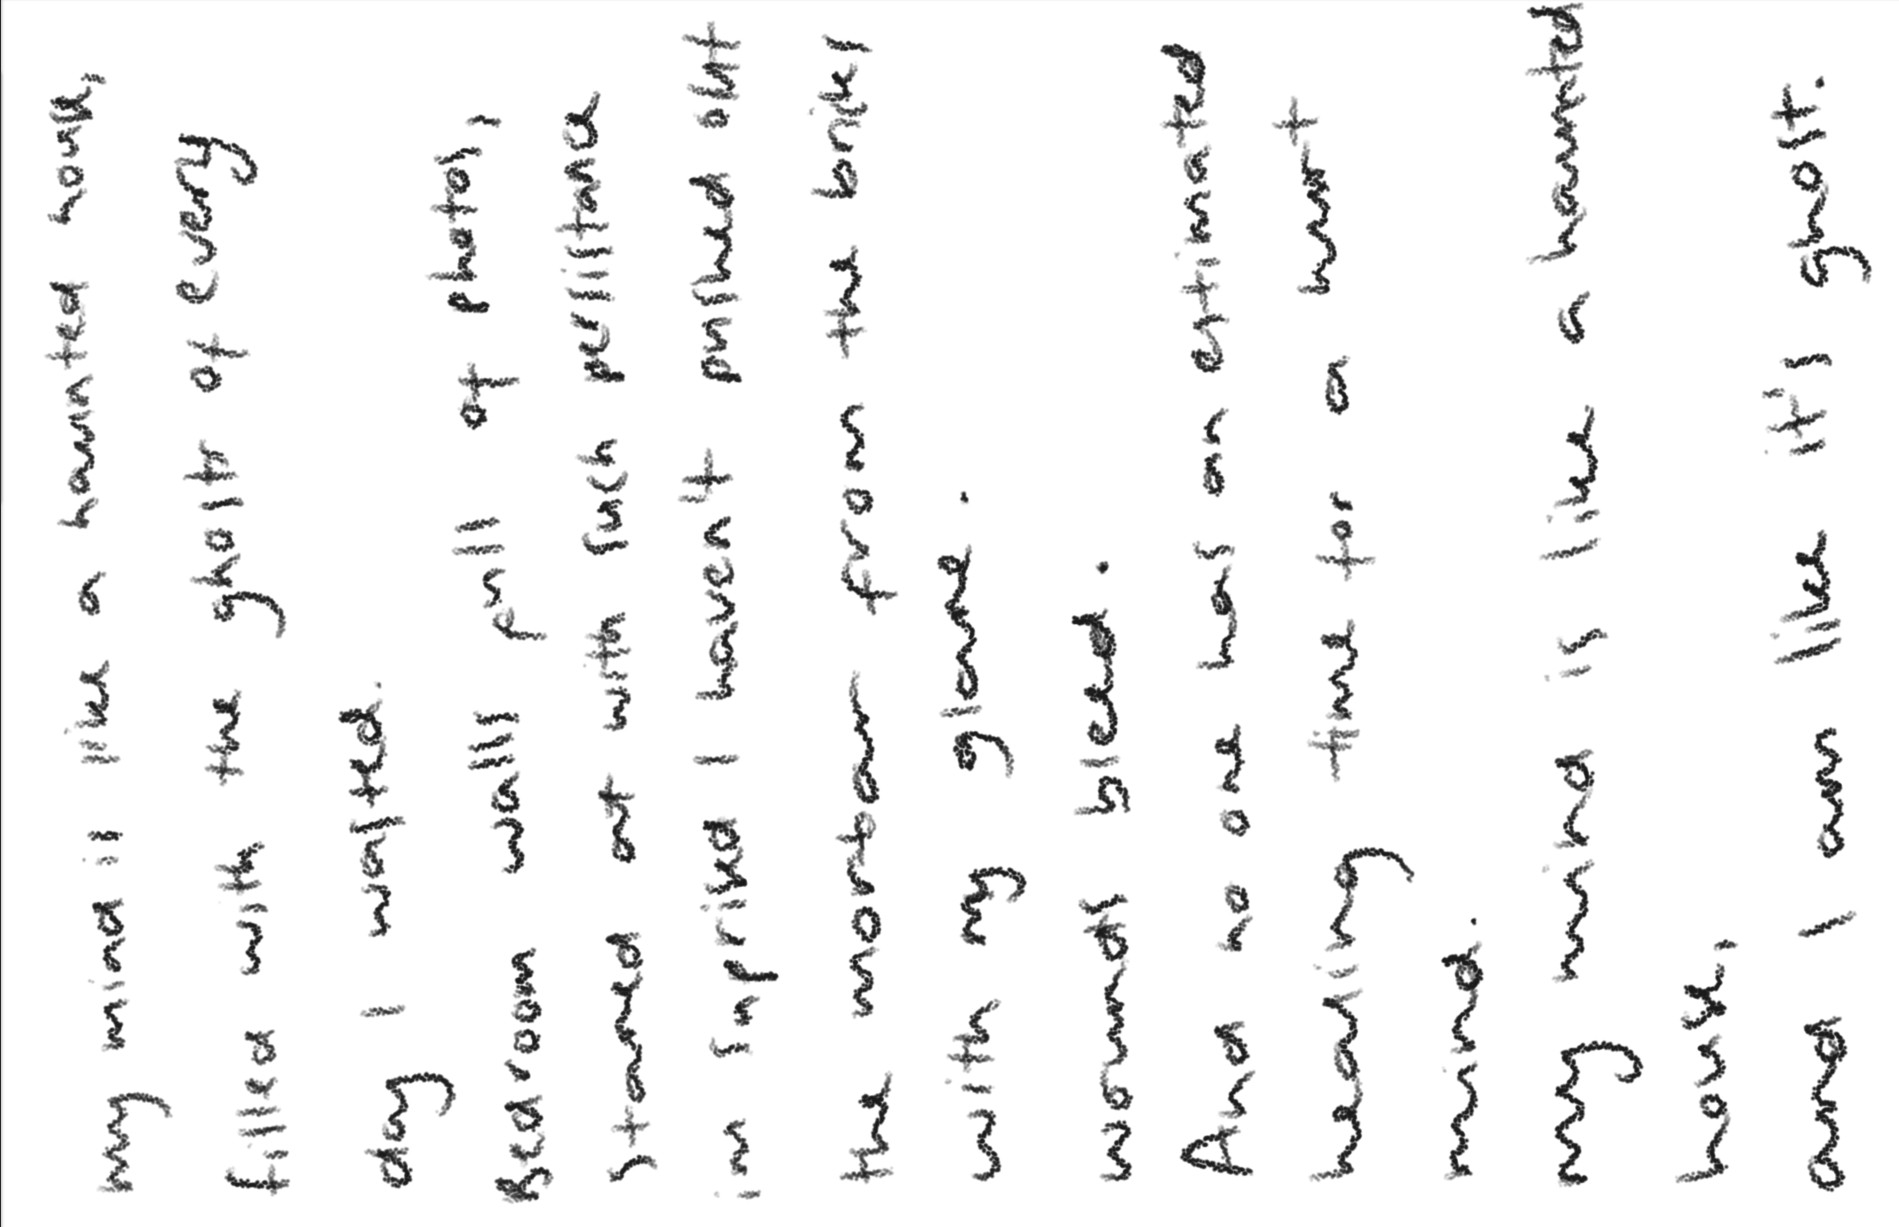 my mind is like a haunted house,
filled with the ghosts of every
day I wasted.
Bedroom walls full of photos,
stared at with such persistance
i'm suprised I haven't pushed out
the mortar from the bricks
with my glare.
wounds bleed.
And no one has an estimated
healing time for a hurt
mind.
my mind is like a haunted
house,
and I am like it's ghost.